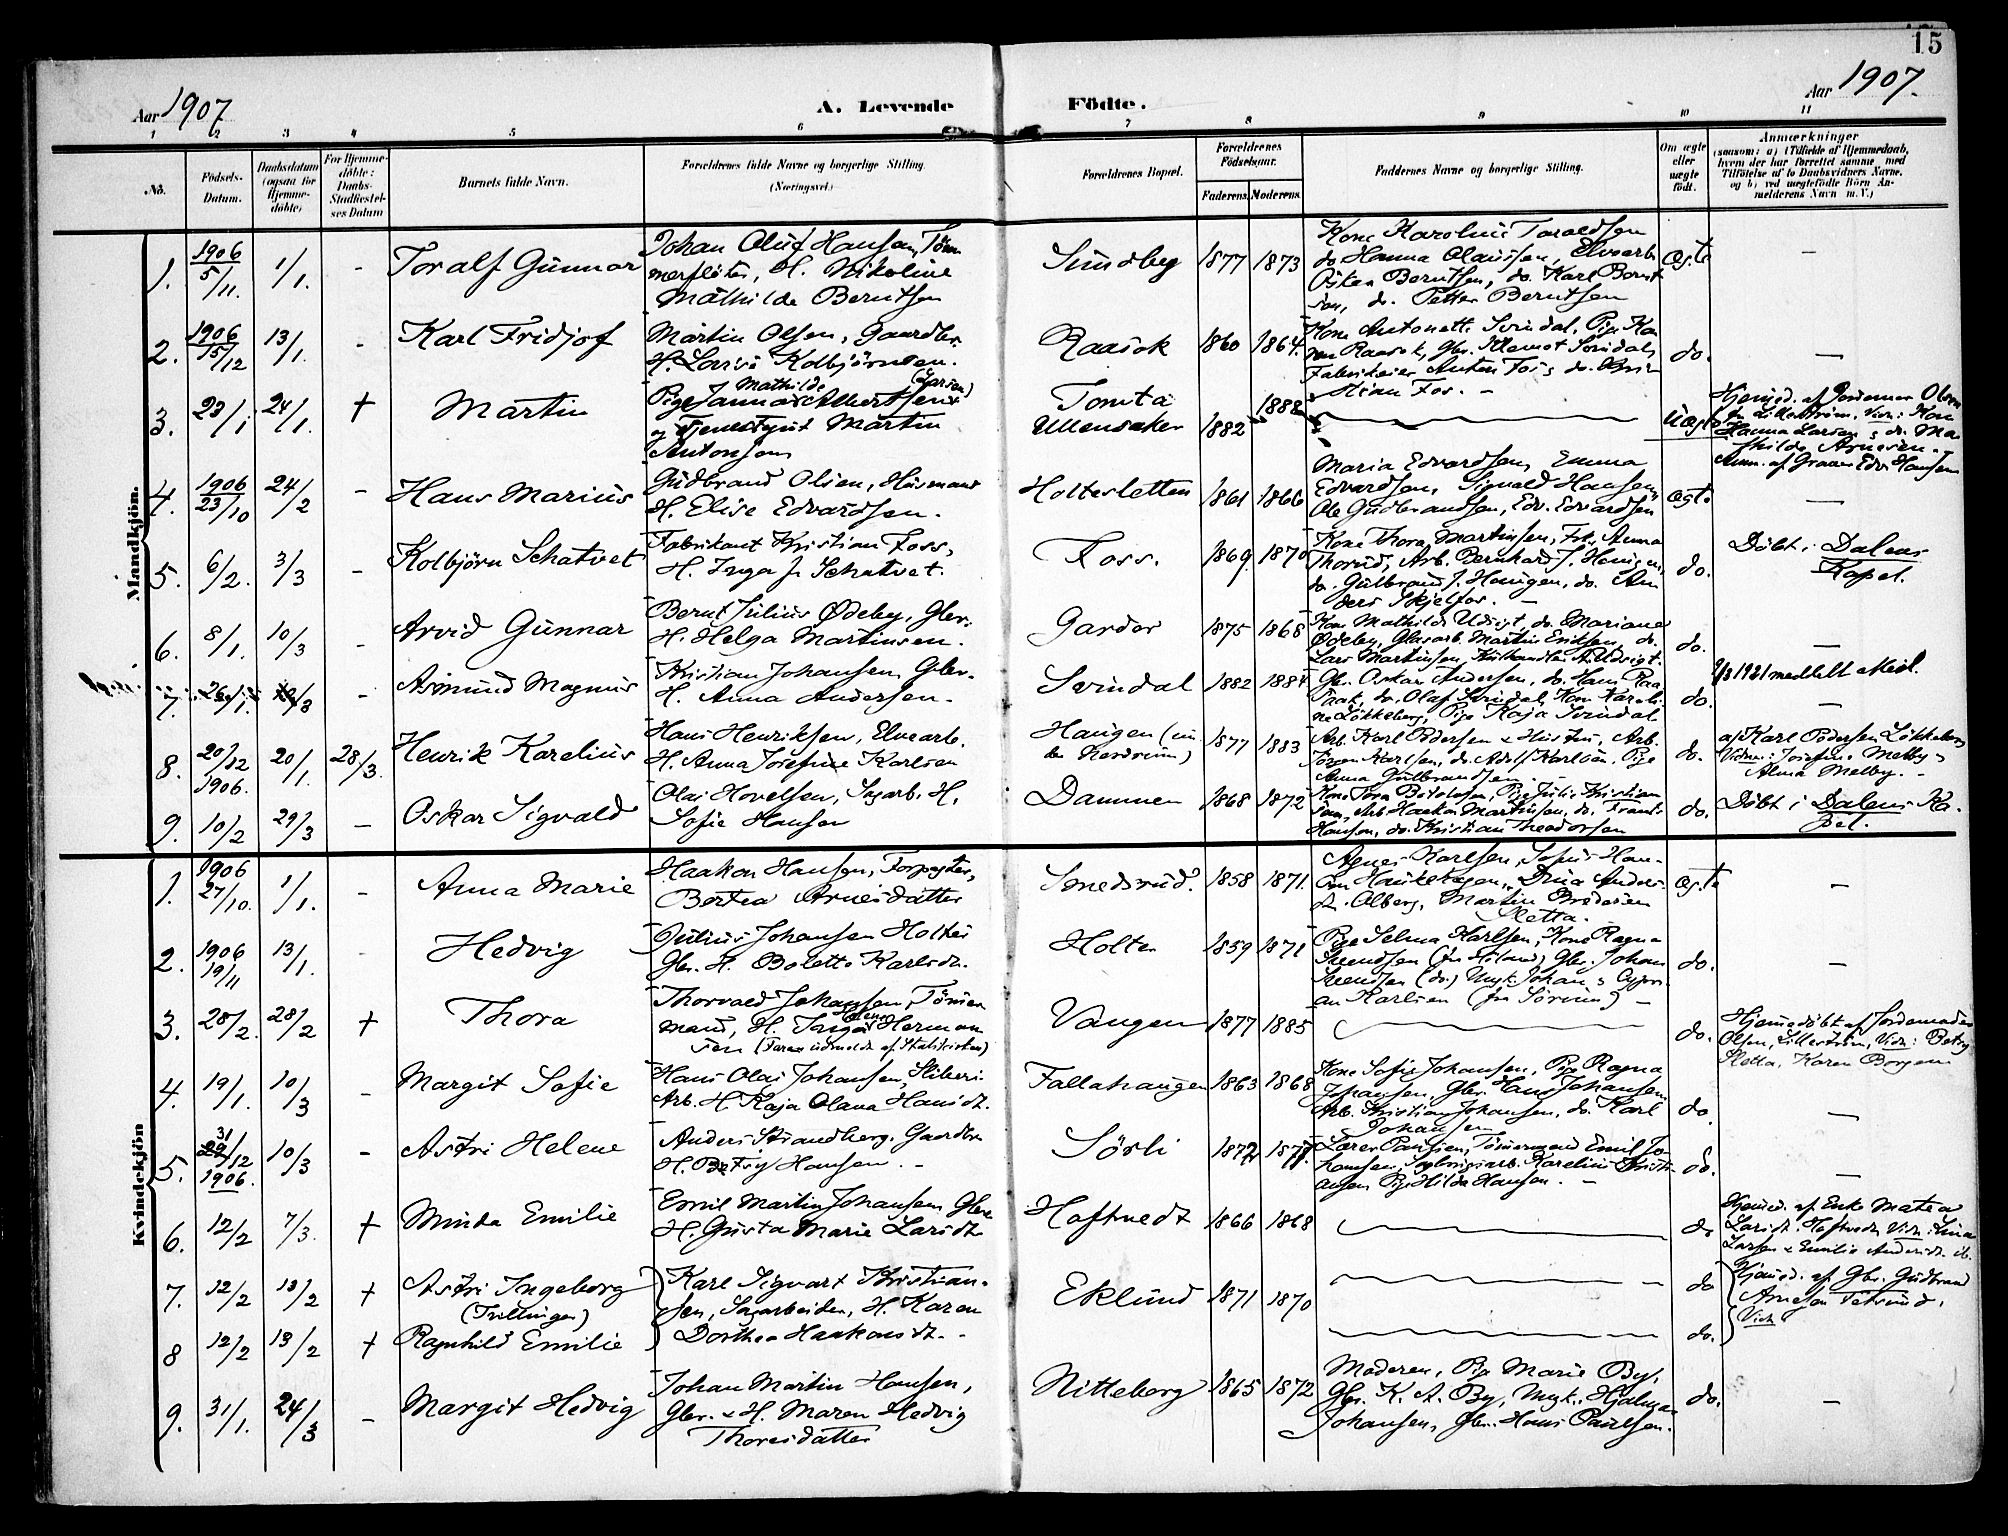 15
Aar 1907
A. Levende Fødte.
Aar 1907.
1 2 3 4 5 6 7 8 9 10 11
No.
Födsels-Datum.
Daabsdatum (ogsaa for Hjemme-döbte)
For Hjemme-döbte: Daabs-Stadfæstel-ses Datum
Barnets fulde Navn.
Forældrenes fulde Navne og borgerlige Stilling. (Næringsvei.)
Forældrenes Bopæl.
Forældrenes Födselsaar.
Faderens. Moderens.
Faddernes Navne og borgerlige Stilling.
Om ægte eller uægte födt.
Anmærkninger
(saasom: a) i Tilfælde af Hjemmedaab, hvem der har forrettet samme, med Tilföielse af to Daabsvidners Navne, og b) ved uægtefödte Börn An-melderens Navn m.V.)
Mandkjön.
1. 1906 5/11. 1/1. - Toralf Gunnar
Johan Oluf Hansen, Töm-
merflöter, H. Nikoline
Mathilde Berntsen
Sundby 1877 1873
Kone Karoline Taraldsen
do Hanna Olaussen, Elvearb.
Oskar Berntsen, do. Karl Bernt
sen, do. Petter Berntsen
ægte -
2. 1906 15/12 13/1. - Karl Fridjof
Martin Olsen, Gaardbr.
H. Lovise Kolbjörnsen.
Raasok 1860 1864.
Kone Antonette Svindal, Pige Ka
Raasok, Gbr. Klemet Svindal,
Fabrikeier Anton Fos, do. Kris-
tian Fos. -
do. -
3. 23/1 24/1. + Martin
Mathilde (Larsen)
Pige Janna Albertsen
og Tjenestgut Martin
Antonsen
Tomta
Ullensaker 1882 1888
Uægte
Hjemmed. af Jordemor Olsen
fra Lilleström. Vidn: Kone
Hanna Larsen & do. Ma-
thilde Arnesen.
Anm. af Graver Edv. Hansen
4. 1906 23/10 24/2 - Hans Marius
Gudbrand Olsen, Husmand
H. Elise Edvardsen.
Holtesletten 1861 1866
Maria Edvardsen, Emma
Edvardsen, Sigvald Hansen,
Ole Gudbrandsen, Edv. Edvardsen
ægte -
5. 6/2. 3/3 - Kolbjörn Schatvet
Fabrikant Kristian Foss,
H. Inga f. Schatvet.
Foss. 1869 1870
Kone Thora Martinsen, Frk. Anna
Thorud, Arb. Bernhard J. Hengen,
do. Gulbrand J. Hengen, do. An-
ders Skjelfos. -
do.
Döbt i Dalens
Kapel.
6. 8/1. 10/3 - Arvid Gunnar
Bernt Julius Ødeby, Gbr.
H. Helga Martinsen.
Garder 1875 1868
Kone Mathilde Udsigt, do. Mariane
Ødeby, Glasarb. Martin Eriksen, do.
Lars Martinsen, Kulhandler A. Udsigt.
do. -
7. 26/1. /3 - Asmund Magnus
Kristian Johansen, Gbr.
H. Anna Andersen.
Svindal 1882 1884
Gbr. Oskar Andersen, do. Hans Raa
Taak, do. Olaf Svindal, Kone Karoli-
ne Lökkeberg, Pige Kaja Svindal
do. 1961 meddelt attest. -
8. 20/12 1906. 20/1. 28/3. Henrik Karelius
Hans Henriksen, Elvearb.
H. Anna Josefine Karlsen
Haugen (un-
der Nordrum) 1877 1883
Arb. Karl Pedersen & Hustru, Arb.
Jörgen Karlsen, do. Adolf Karlsen, Pige
Anna Gulbrandsen
do.
af Karl Pedersen Lökkeberg
Vidner: Josefine Melby &
Alma Melby. -
9. 10/2 29/3 - Oskar Sigvald
Olai Hovelsen, Sagarb. H.
Sofie Hansen
Dammen 1868 1872
Kone Thora Bertelsen, Pige Julie Kristian
sen, Arb. Haakon Martinsen, do. Frants
Hansen, do. Kristian Theodorsen
do.
Döbt i Dalens Ka-
pel.
Kvindekjön
1. 1906 27/10. 1/1. - Anna Marie
Haakon Hansen, Forpagter,
Bertea Arnesdatter
Smedsrud. 1858 1871.
Agnes Karlsen, Sofus Han-
sen Haukehagen, Drina Anders-
dt. Alberg, Martin Brodersen
Sletta. -
ægte -
2. 1906 19/11 13/1. - Hedvig
Julius Johansen Holter
Gbr. H. Bolette Karlsdt.
Holter 1859 1871
Pige Selma Karlsen, Kone Ragna
Svendsen (fra Höland) Gbr. Johan
Svendsen (do.) Ungk. Johan & Cypri-
an Karlsen (fra Sörum) -
do. -
3. 28/2. 28/2 + Thora
Thorvald Johansen, Tömmer
mand, H. Inga Helene Herman
sen (Faren udmeldt af Statskirken)
Vangen 1877 1885
do.
Hjemmedöbt af Jordemoder
Olsen, Lilleström, Vidn: Betzy
Sletta, Karen Borgen
4. 19/1. 10/3 - Margit Sofie
Hans Olai Johansen, Sliberi-
Arb. H. Kaja Olava Hansdt.
Fallahaugen 1863 1868
Kone Sofie Johansen, Pige Ragna
Johansen, Gbr. Hans Johansen
Arb. Kristian Johansen, do. Karl
Johansen
do. -
5. 31/12 1906. 10/3 - Astri Helene
Anders Strandberg, Gaardbr.
H. Betsy Hansen. -
Sörli 1872 1877.
Lærer Paulsen, Tömmermand Emil Jo
hansen, arb. Karelius Kristi-
ansen Pige Hilda Hansen. -
do. -
6. 12/2 7/3. + Minda Emilie
Emil Martin Johansen Gbr.
H. Gusta Marie Larsdt.
Haftvedt 1866 1868
do
Hjemmed. af Enke Matea
Larsdt. Haftvedt Vidn: Lina
Larsen & Emilie Andersdt. ib.
7. 12/2 13/2 + Astri Ingeborg
(Trillinger)
8 12/2 13/2 + Ragnhild Emilie
Karl Sigvart Kristian-
sen, Sagarbeider, H. Karen
Dorthea Haakonsdt. -
Eklund 1871 1870
do
do.
Hjemmed. af Gbr. Gudbrand
Arnesen
Vidn
9. 31/1. 24/3 - Margit Hedvig
Johan Martin Hansen,
Gbr. & H. Maren Hedvig
Thoresdatter
Nitteberg 1865 1872
Moderen, Pige Marie By,
Gbr. K. A. By, Ungk. Hjalmar
Johansen, Gbr. Hans Paulsen.
do. -